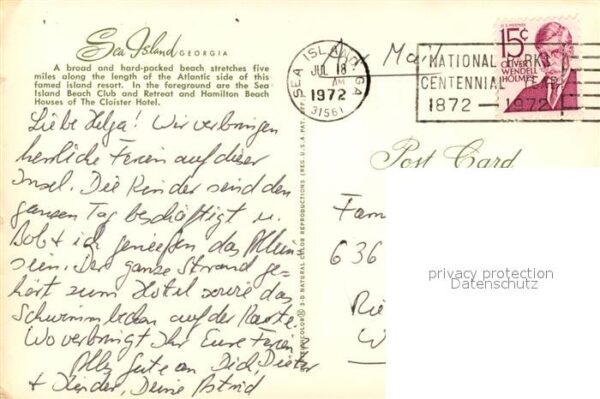 Sea Island GEORGIA
A broad and hard-packed beach stretches five
miles along the length of the Atlantic side of this
famed island resort. In the foreground are the Sea
Island Beach Club and Retreat and Hamilton Beach
Houses of The Cloister Hotel.
Liebe Helga! Wir verbringen
herrliche Ferien auf dieser
Insel. Die Kinder sind den
ganzen Tag beschäftigt u.
Bob + ich genießen das Allein-
sein. Der ganze Strand ge-
hört zum Hotel sowie das
Schwimmbecken auf der Karte.
Wo verbringt Ihr Eure Ferien?
Alles Gute an Dich, Dieter
+ Kinder, Deine Astrid
Air Mail
SEA ISLAND, GA
JUL 18
1972
31561
NATIONAL PARKS
CENTENNIAL YEAR
1872 1972
U.S. POSTAGE
15¢
OLIVER
WENDELL
HOLMES
Post Card
3-D NATURAL COLOR REPRODUCTIONS (REG. U.S.A. PAT. OFF.
Fam
636
W
privacy protection
Datenschutz